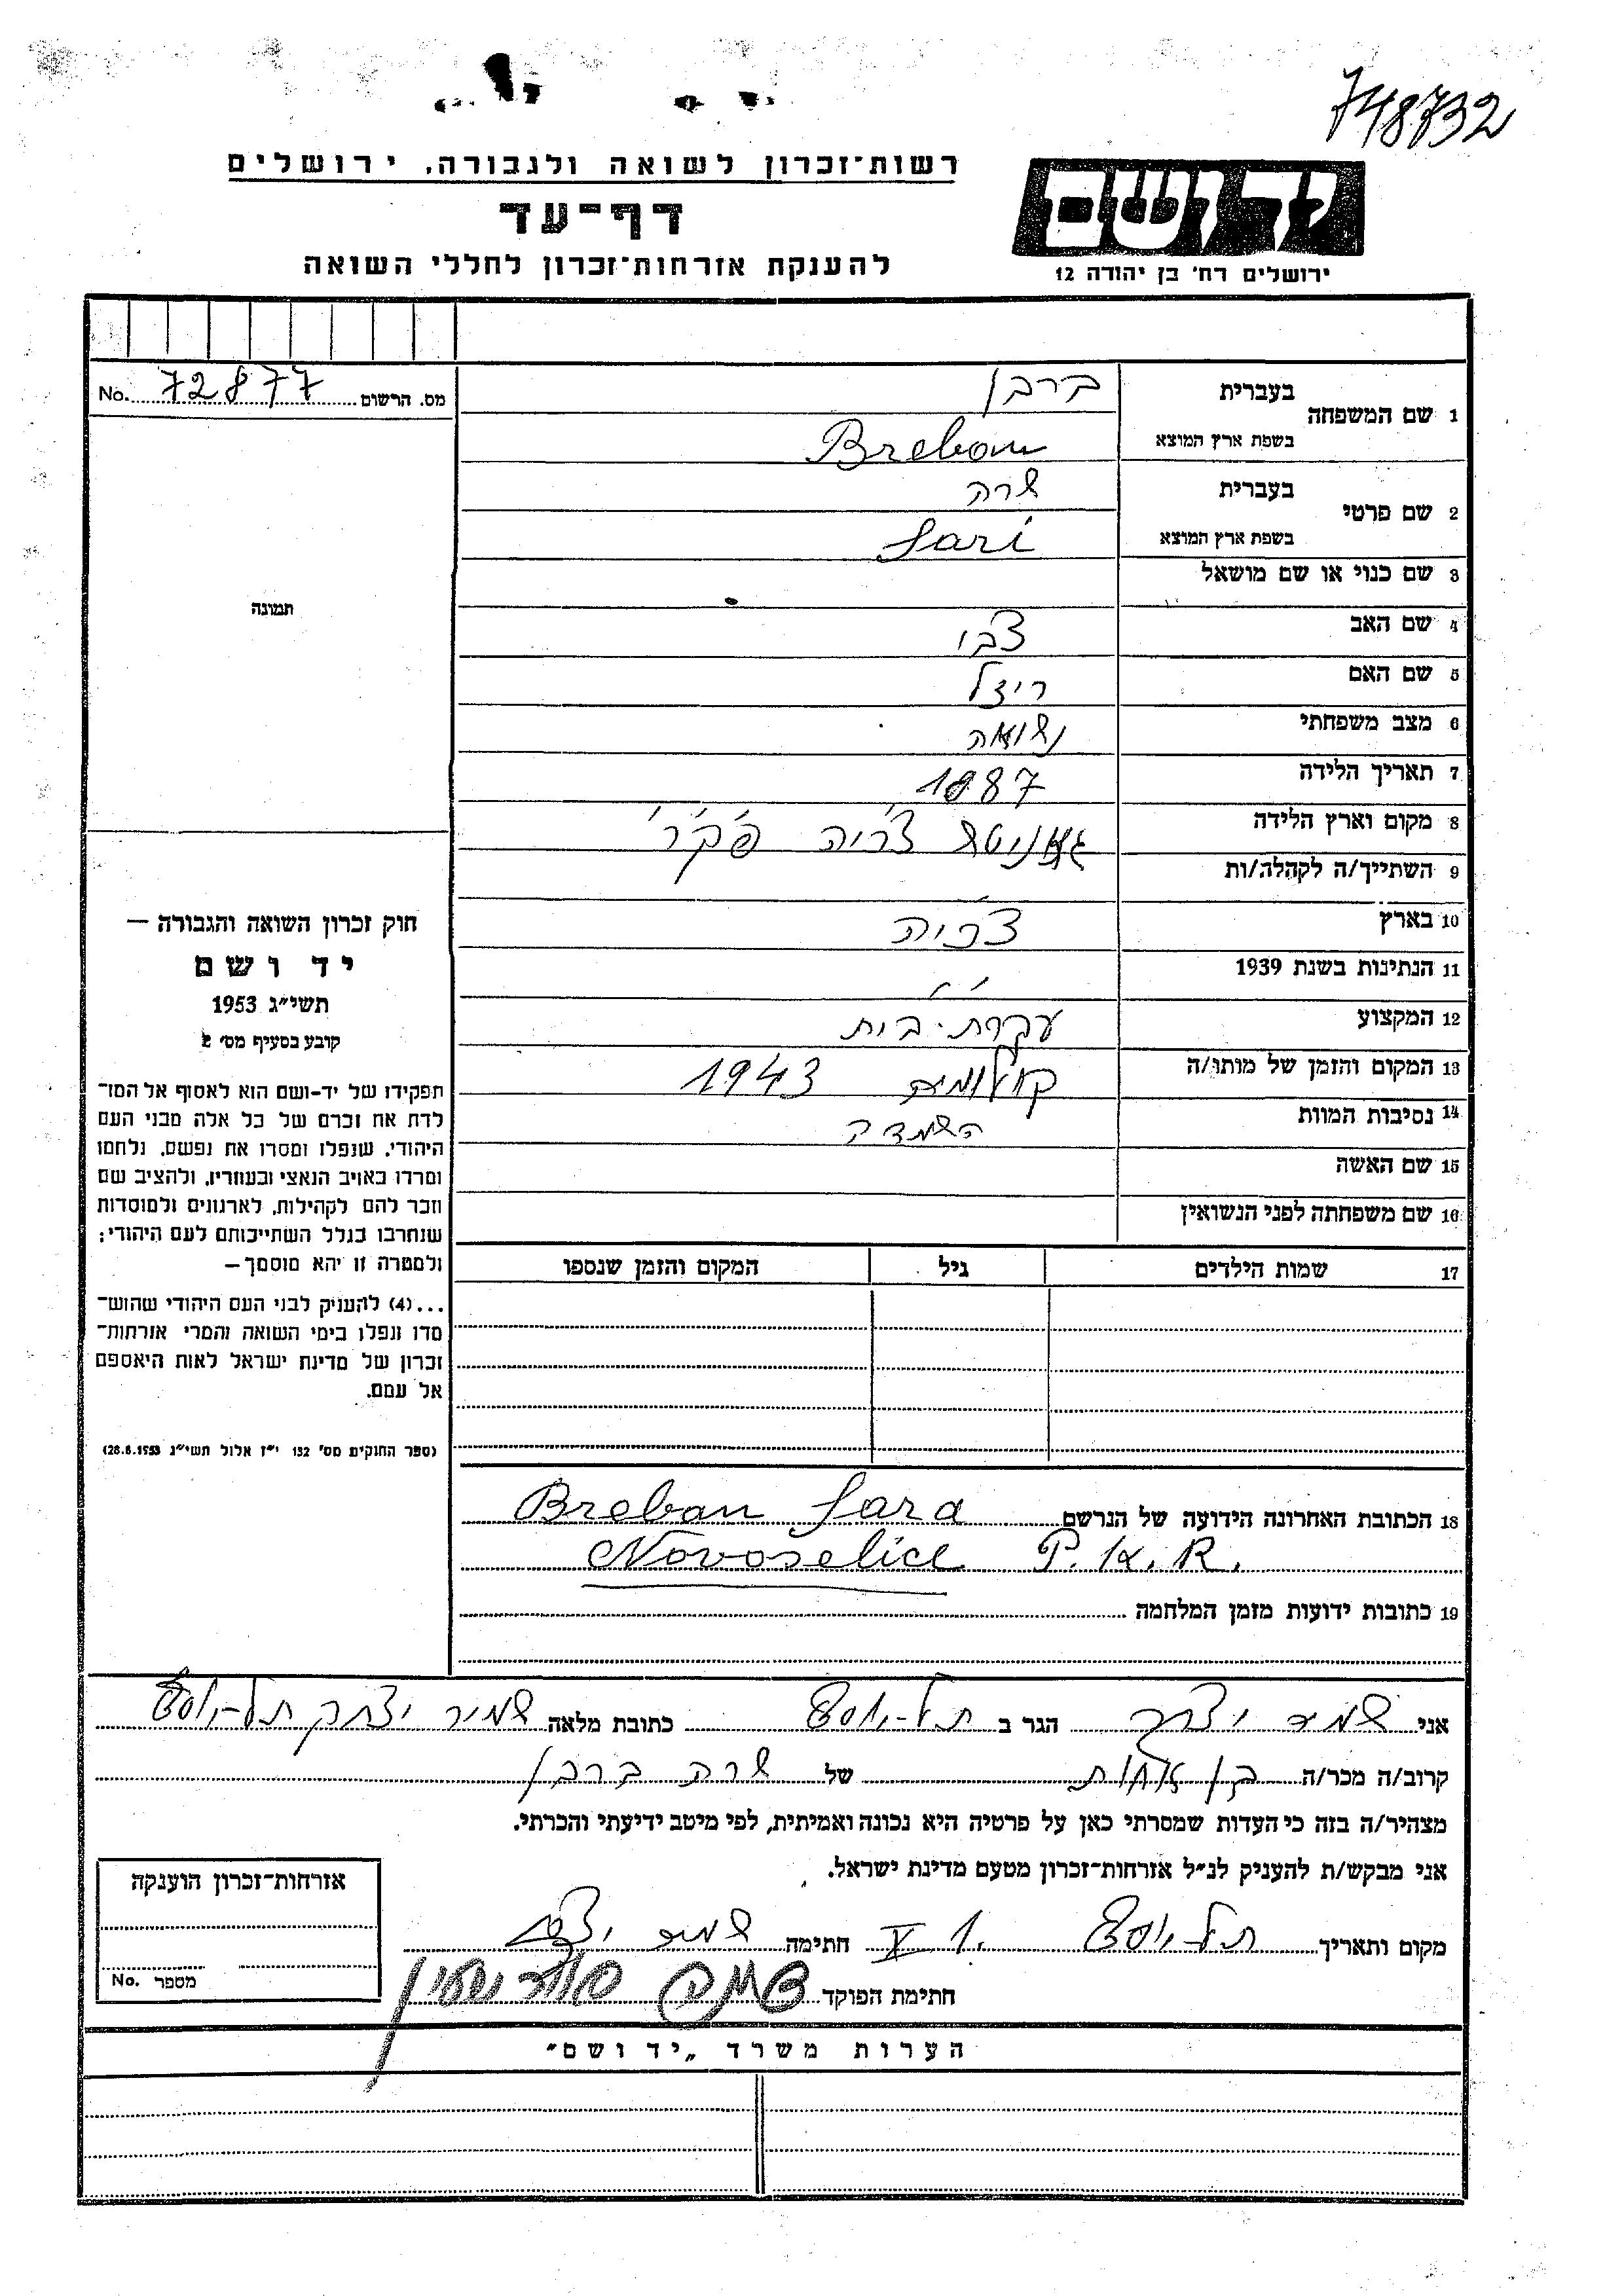 748732
רשות־זכרון לשואה ולגבורה, ירושלים
יד ושם
דף־עד
להענקת אזרחות־זכרון לחללי השואה
ירושלים רח' בן יהודה 12
מס. הרשום 72877 No.
1 שם המשפחה בעברית ברבן
בשפת ארץ המוצא Breban
2 שם פרטי בעברית שרה
בשפת ארץ המוצא Sari
3 שם כנוי או שם מושאל
4 שם האב צבי
5 שם האם ריזל
6 מצב משפחתי נשואה
7 תאריך הלידה 1887
8 מקום וארץ הלידה צ'כיה פ.ק.ר.
9 השתייך/ה לקהלה/ות
10 בארץ צ'כיה
11 הנתינות בשנת 1939 " "
12 המקצוע עקרת-בית
13 המקום והזמן של מותו/ה 1943
14 נסיבות המוות השמדה
15 שם האשה
16 שם משפחתה לפני הנשואין
17 שמות הילדים גיל המקום והזמן שנספו
תמונה
חוק זכרון השואה והגבורה —
יד ושם
תשי״ג 1953
קובע בסעיף מס' 2
תפקידו של יד-ושם הוא לאסוף אל המו־
לדת את זכרם של כל אלה מבני העם
היהודי, שנפלו ומסרו את נפשם, נלחמו
ומרדו באויב הנאצי ובעוזריו, ולהציב שם
וזכר להם לקהילות, לארגונים ולמוסדות
שנחרבו בגלל השתייכותם לעם היהודי;
ולמטרה זו יהא מוסמך —
...(4) להעניק לבני העם היהודי שהוש־
מדו ונפלו בימי השואה והמרי אזרחות־
זכרון של מדינת ישראל לאות היאספם
אל עמם.
(ספר החוקים מס' 132 י״ז אלול תשי״ג 28.8.1953)
18 הכתובת האחרונה הידועה של הנרשם Breban Sara
Novoselice P.K.R.
19 כתובות ידועות מזמן המלחמה
אני שמיר יצחק הגר ב תל-יוסף כתובת מלאה שמיר יצחק תל-יוסף
קרוב/ה מכר/ה בן אחות של שרה ברבן
מצהיר/ה בזה כי העדות שמסרתי כאן על פרטיה היא נכונה ואמיתית, לפי מיטב ידיעתי והכרתי.
אני מבקש/ת להעניק לנ״ל אזרחות-זכרון מטעם מדינת ישראל.
מקום ותאריך תל-יוסף 1. V חתימה שמיר יצחק
חתימת הפוקד
אזרחות-זכרון הוענקה
מספר No.
הערות משרד „יד ושם״